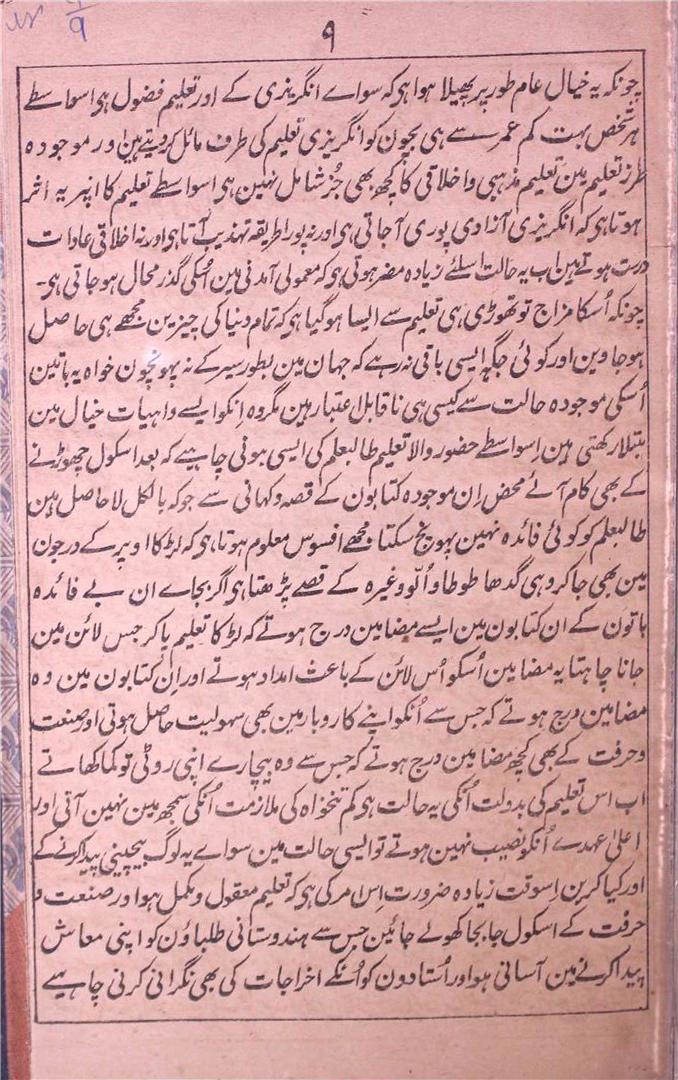 ۹
۹
چونکہ یہ خیال عام طور پر پھیلا ہوا ہی کہ سواے انگریزی کے اور تعلیم فضول ہی اسواسطے
ہر شخص بہت کم عمر سے ہی بچون کو انگریزی تعلیم کی طرف مائل کردیتے ہین اور موجودہ
طرز تعلیم مین تعلیم مذہبی و اخلاقی کا کچھ بھی جُز شامل نہین ہی اسواسطے تعلیم کا اُنپر یہ اثر
ہوتا ہی کہ انگریزی آزادی پوری آجاتی ہی اور نہ پورا طریقہ تہذیب آتا ہی اور نہ اخلاقی عادات
درست ہوتے ہین اب یہ حالت اسلئے زیادہ مضر ہوتی ہی کہ معمولی آمدنی مین اُسکی گذر محال ہو جاتی ہی۔
چونکہ اُسکا مزاج تو تھوڑی ہی تعلیم سے ایسا ہو گیا ہی کہ تمام دنیا کی چیزین مجھے ہی حاصل
ہوجاوین اور کوئی جگہ ایسی باقی نہ رہے کہ جہان مین بطور سیر کے نہ پہونچون خواہ یہ باتین
اُسکی موجودہ حالت سے کیسی ہی ناقابل اعتبار ہین مگر وہ اِنکو ایسے واہیات خیال مین
مبتلا رکھتی ہین اِسواسطے حضور والا تعلیم طالبعلم کی ایسی ہونی چاہیے کہ بعد اسکول چھوڑنے
کے بھی کام آئے محض اِن موجودہ کتابون کے قصہ و کہانی سے جو کہ بالکل لاحاصل ہین
طالبعلم کو کوئی فائدہ نہین پہونچ سکتا مجھے افسوس معلوم ہوتا ہی کہ لڑکا اوپر کے درجون
مین بھی جا کر وہی گدھا طوطا و اُلّو وغیرہ کے قصے پڑھتا ہی اگر بجاے ان بے فائدہ
باتون کے ان کتابون مین ایسے مضامین درج ہوتے کہ لڑکا تعلیم پا کر جس لائن مین
جانا چاہتا یہ مضامین اُسکو اُس لائن کے باعث امداد ہوتے اور اِن کتابون مین وہ
مضامین درج ہوتے کہ جس سے اُنکو اپنے کاروبار مین بھی سہولیت حاصل ہوتی اور صنعت
و حرفت کے بھی کچھ مضامین درج ہوتے کہ جس سے وہ بیچارے اپنی روٹی تو کما کھاتے
اب اس تعلیم کی بدولت اُنکی یہ حالت ہی کم تنخواہ کی ملازمت اُنکی سمجھ مین نہین آتی اور
اعلیٰ عہدے اُنکو نصیب نہین ہوتے تو ایسی حالت مین سواے یہ لوگ بیچینی پیدا کرنے کے
اور کیا کرین اِسوقت زیادہ ضرورت اِس امر کی ہی کہ تعلیم معقول و مکمل ہو اور صنعت و
حرفت کے اسکول جابجا کھولے جائین جس سے ہندوستانی طلباؤن کو اپنی معاش
پیدا کرنے مین آسانی ہو اور اُستادون کو اُنکے اخراجات کی بھی نگرانی کرنی چاہیے